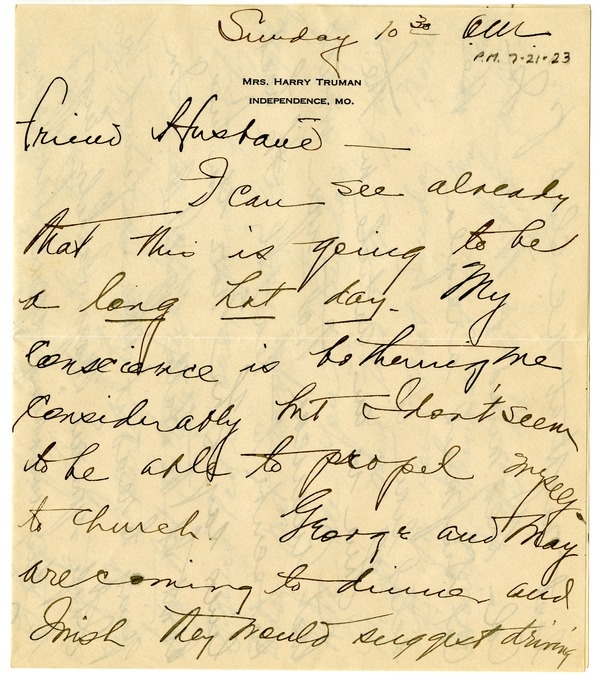 Sunday 10 30 AM
P.M. 7-21-23
MRS. HARRY TRUMAN
INDEPENDENCE, MO.
Friend Husband —
I can see already
that this is going to be
a long hot day. My
conscience is bothering me
considerably but I don't seem
to be able to propel myself
to church. George and May
are coming to dinner and
I wish they would suggest driving